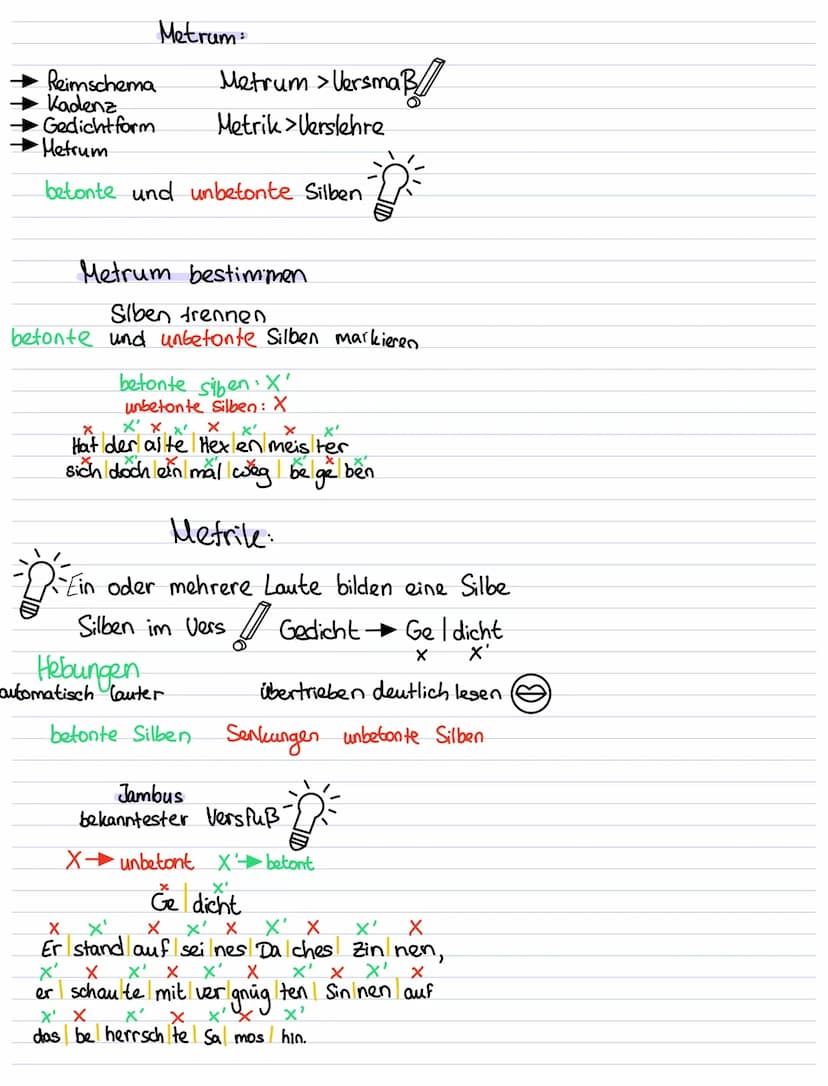 Metrum:
→ Reimschema Metrum > Versmaß!
→ Kadenz
→ Gedichtform Metrik > Verslehre
→ Metrum
betonte und unbetonte Silben
Metrum bestimmen
Silben trennen
betonte und unbetonte Silben markieren
betonte silben: X'
unbetonte Silben: X
x x' x x' x x' x x'
Hat | der | al | te | Hex | en | meis | ter
x x' x x' x x' x x'
sich | doch | ein | mal | weg | be | ge | ben
Metrik:
Ein oder mehrere Laute bilden eine Silbe
Silben im Vers ! Gedicht → Ge | dicht
x x'
Hebungen
automatisch lauter übertrieben deutlich lesen
betonte Silben Senkungen unbetonte Silben
Jambus
bekanntester Versfuß
X → unbetont X' → betont
x x'
Ge | dicht
x x' x x' x x' x x' x
Er | stand | auf | sei | nes | Da | ches | Zin | nen,
x' x x' x x' x x' x x' x
er | schau | te | mit | ver | gnüg | ten | Sin | nen | auf
x' x x' x x' x x'
das | be | herrsch | te | Sa | mos | hin.